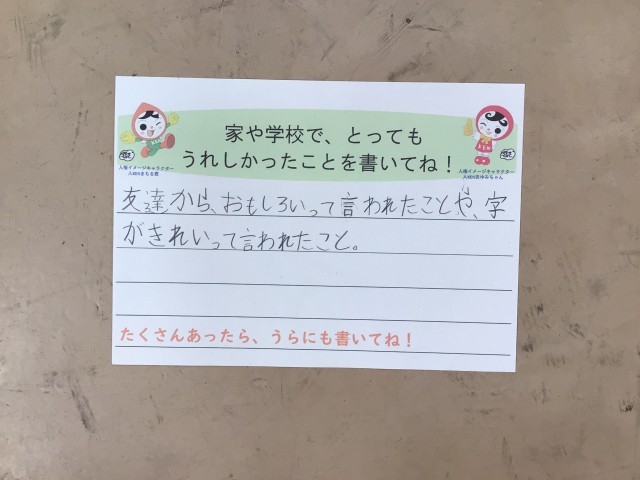 家や学校で、とっても
うれしかったことを書いてね！
人権イメージキャラクター
人KENまもる君
人権イメージキャラクター
人KENあゆみちゃん
友達から、おもしろいって言われたことや、字
がきれいって言われたこと。
たくさんあったら、うらにも書いてね！